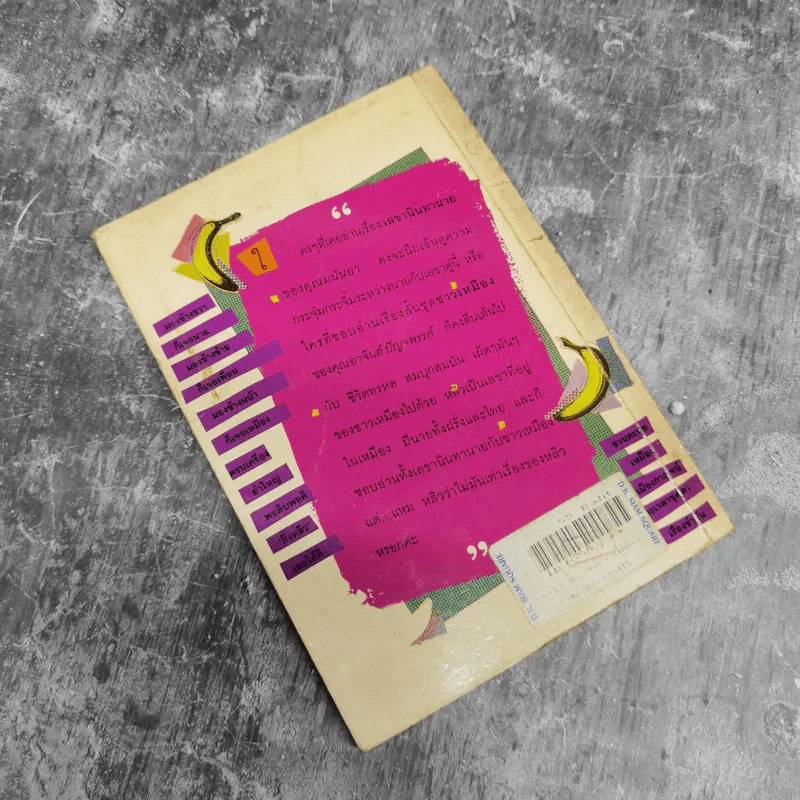 “
ใครๆที่เคยอ่านเรื่องเลขานินทานาย
ของคุณมนันยา คงจะนึกเอ็นดูความ
กระจุ๋มกระจิ๋มระหว่างนายกับเลขาคู่นี้ หรือ
ใครที่ชอบอ่านเรื่องสั้นชุดชาวเหมือง
ของคุณอาจินต์ ปัญจพรรค์ ก็คงตื่นเต้นไป
กับ ชีวิตทรหด สมบุกสมบัน เผ็ดๆมันๆ
ของชาวเหมืองไปด้วย หลิวเป็นเลขาที่อยู่
ในเหมือง มีนายทั้งฝรั่งและไทย และก็
ชอบอ่านทั้งเลขานินทานายกับชาวเหมือง
แต่...แหม หลิวว่าไม่มันเท่าเรื่องของหลิว
หรอกค่ะ
”
มองข้างขวา
ก็เจอนาย
มองข้างซ้าย
ก็เจอเพื่อน
มองข้างหน้า
ก็เจอเหมือง
ครบเครื่อง
ยำใหญ่
พอดิบพอดี
กิ่งหลิว
เลยได้ที
ชวนตะลุย
เหมือง
เมืองกาญจน์
D.K. SIAM SQUARE
D.K. SIAM SQUARE